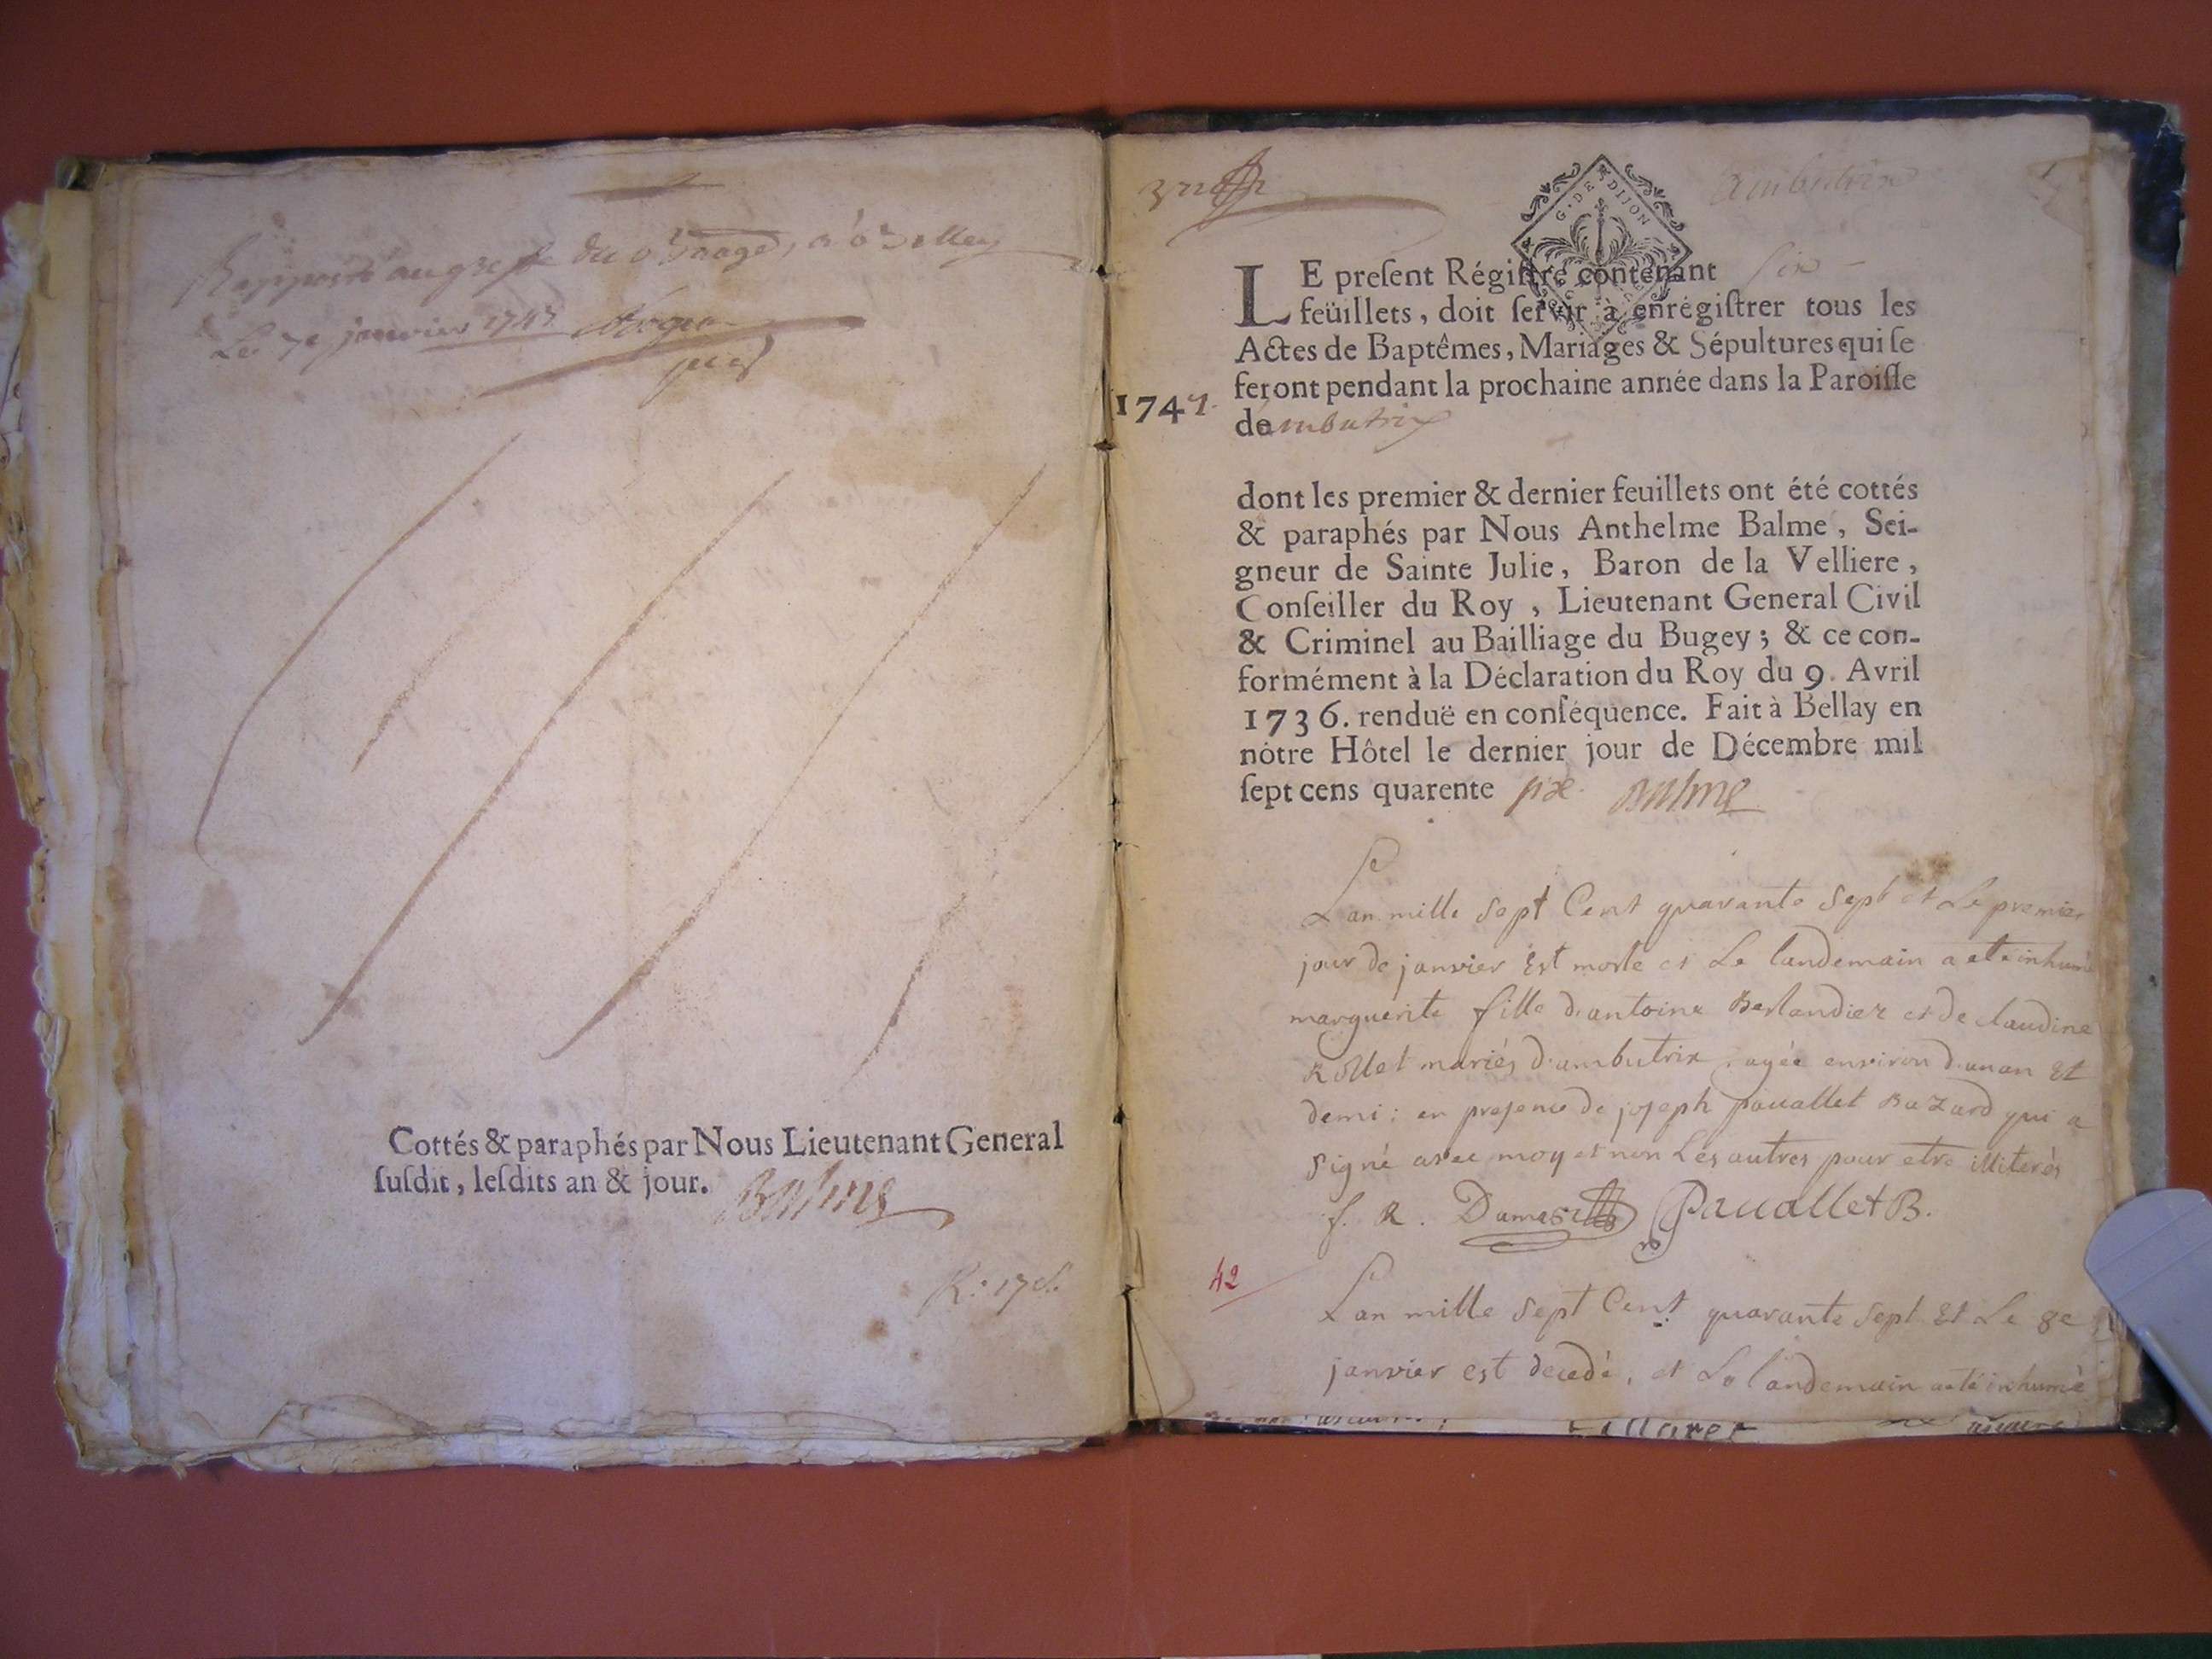 Rapporté au greffe du Bailliage à Belley
Le 7e janvier 1747
Cottés & paraphés par Nous Lieutenant General
ſuſdit, leſdits an & jour. Balme
ambutrix
G. DE DIJON
LE preſent Régiſtre contenant six
feüillets, doit ſervir à enrégiſtrer tous les
Actes de Baptêmes, Mariages & Sépultures qui ſe
feront pendant la prochaine année dans la Paroiſſe
1747.
de ambutrix
dont les premier & dernier feuillets ont été cottés
& paraphés par Nous Anthelme Balme, Sei-
gneur de Sainte Julie, Baron de la Velliere,
Conſeiller du Roy, Lieutenant General Civil
& Criminel au Bailliage du Bugey; & ce con-
formément à la Déclaration du Roy du 9. Avril
1736. renduë en conſéquence. Fait à Bellay en
nòtre Hôtel le dernier jour de Décembre mil
ſept cens quarente six Balme
Lan mille sept Cent quarante sept et Le premier
jour de janvier Est morte et Le landemain a eté inhumé
marguerite fille d'antoine Berlandier et de claudine
Rollet mariés d'ambutrix, agée environ d'un an Et
demi: en presence de joseph pauallet Bazard qui a
signé avec moy et non Les autres pour etre illiterés
f. R. Pauallet B.
42
Lan mille sept Cent quarante sept Et Le 8e
janvier est decedé, et Le landemain a eté inhumé